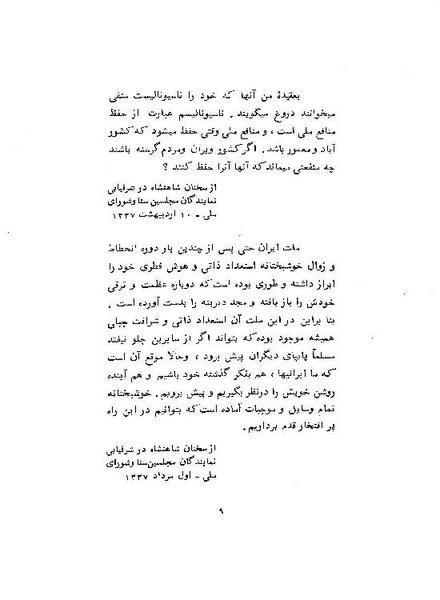 بعقیدهٔ من آنها که خود را ناسیونالیست منفی
میخوانند دروغ میگویند . ناسیونالیسم عبارت از حفظ
منافع ملی است ، و منافع ملی وقتی حفظ میشود که کشور
آباد و معمور باشد . اگر کشور ویران و مردم گرسنه باشند
چه منفعتی میماند که آنها آنرا حفظ کنند ؟
از سخنان شاهنشاه در شرفیابی
نمایندگان مجلسین سنا و شورای
ملی - ۱۰ اردیبهشت ۱۳۳۷
ملت ایران حتی پس از چندین بار دوره انحطاط
و زوال خوشبختانه استعداد ذاتی و هوش فطری خود را
ابراز داشته و طوری بوده است که دوباره عظمت و ترقی
خودش را باز یافته و مجد دیرینه را بدست آورده است .
بنا براین در این ملت آن استعداد ذاتی و شرافت جبلی
همیشه موجود بوده که بتواند اگر از سایرین جلو نیفتد
مسلماً بپای دیگران پیش برود ، و حالا موقع آن است
که ما ایرانیها ، هم بفکر گذشته خود باشیم و هم آینده
روشن خویش را درنظر بگیریم و پیش برویم . خوشبختانه
تمام وسایل و موجبات آماده است که بتوانیم در این راه
پر افتخار قدم برداریم .
از سخنان شاهنشاه در شرفیابی
نمایندگان مجلسین سنا و شورای
ملی - اول مرداد ۱۳۳۷
۹